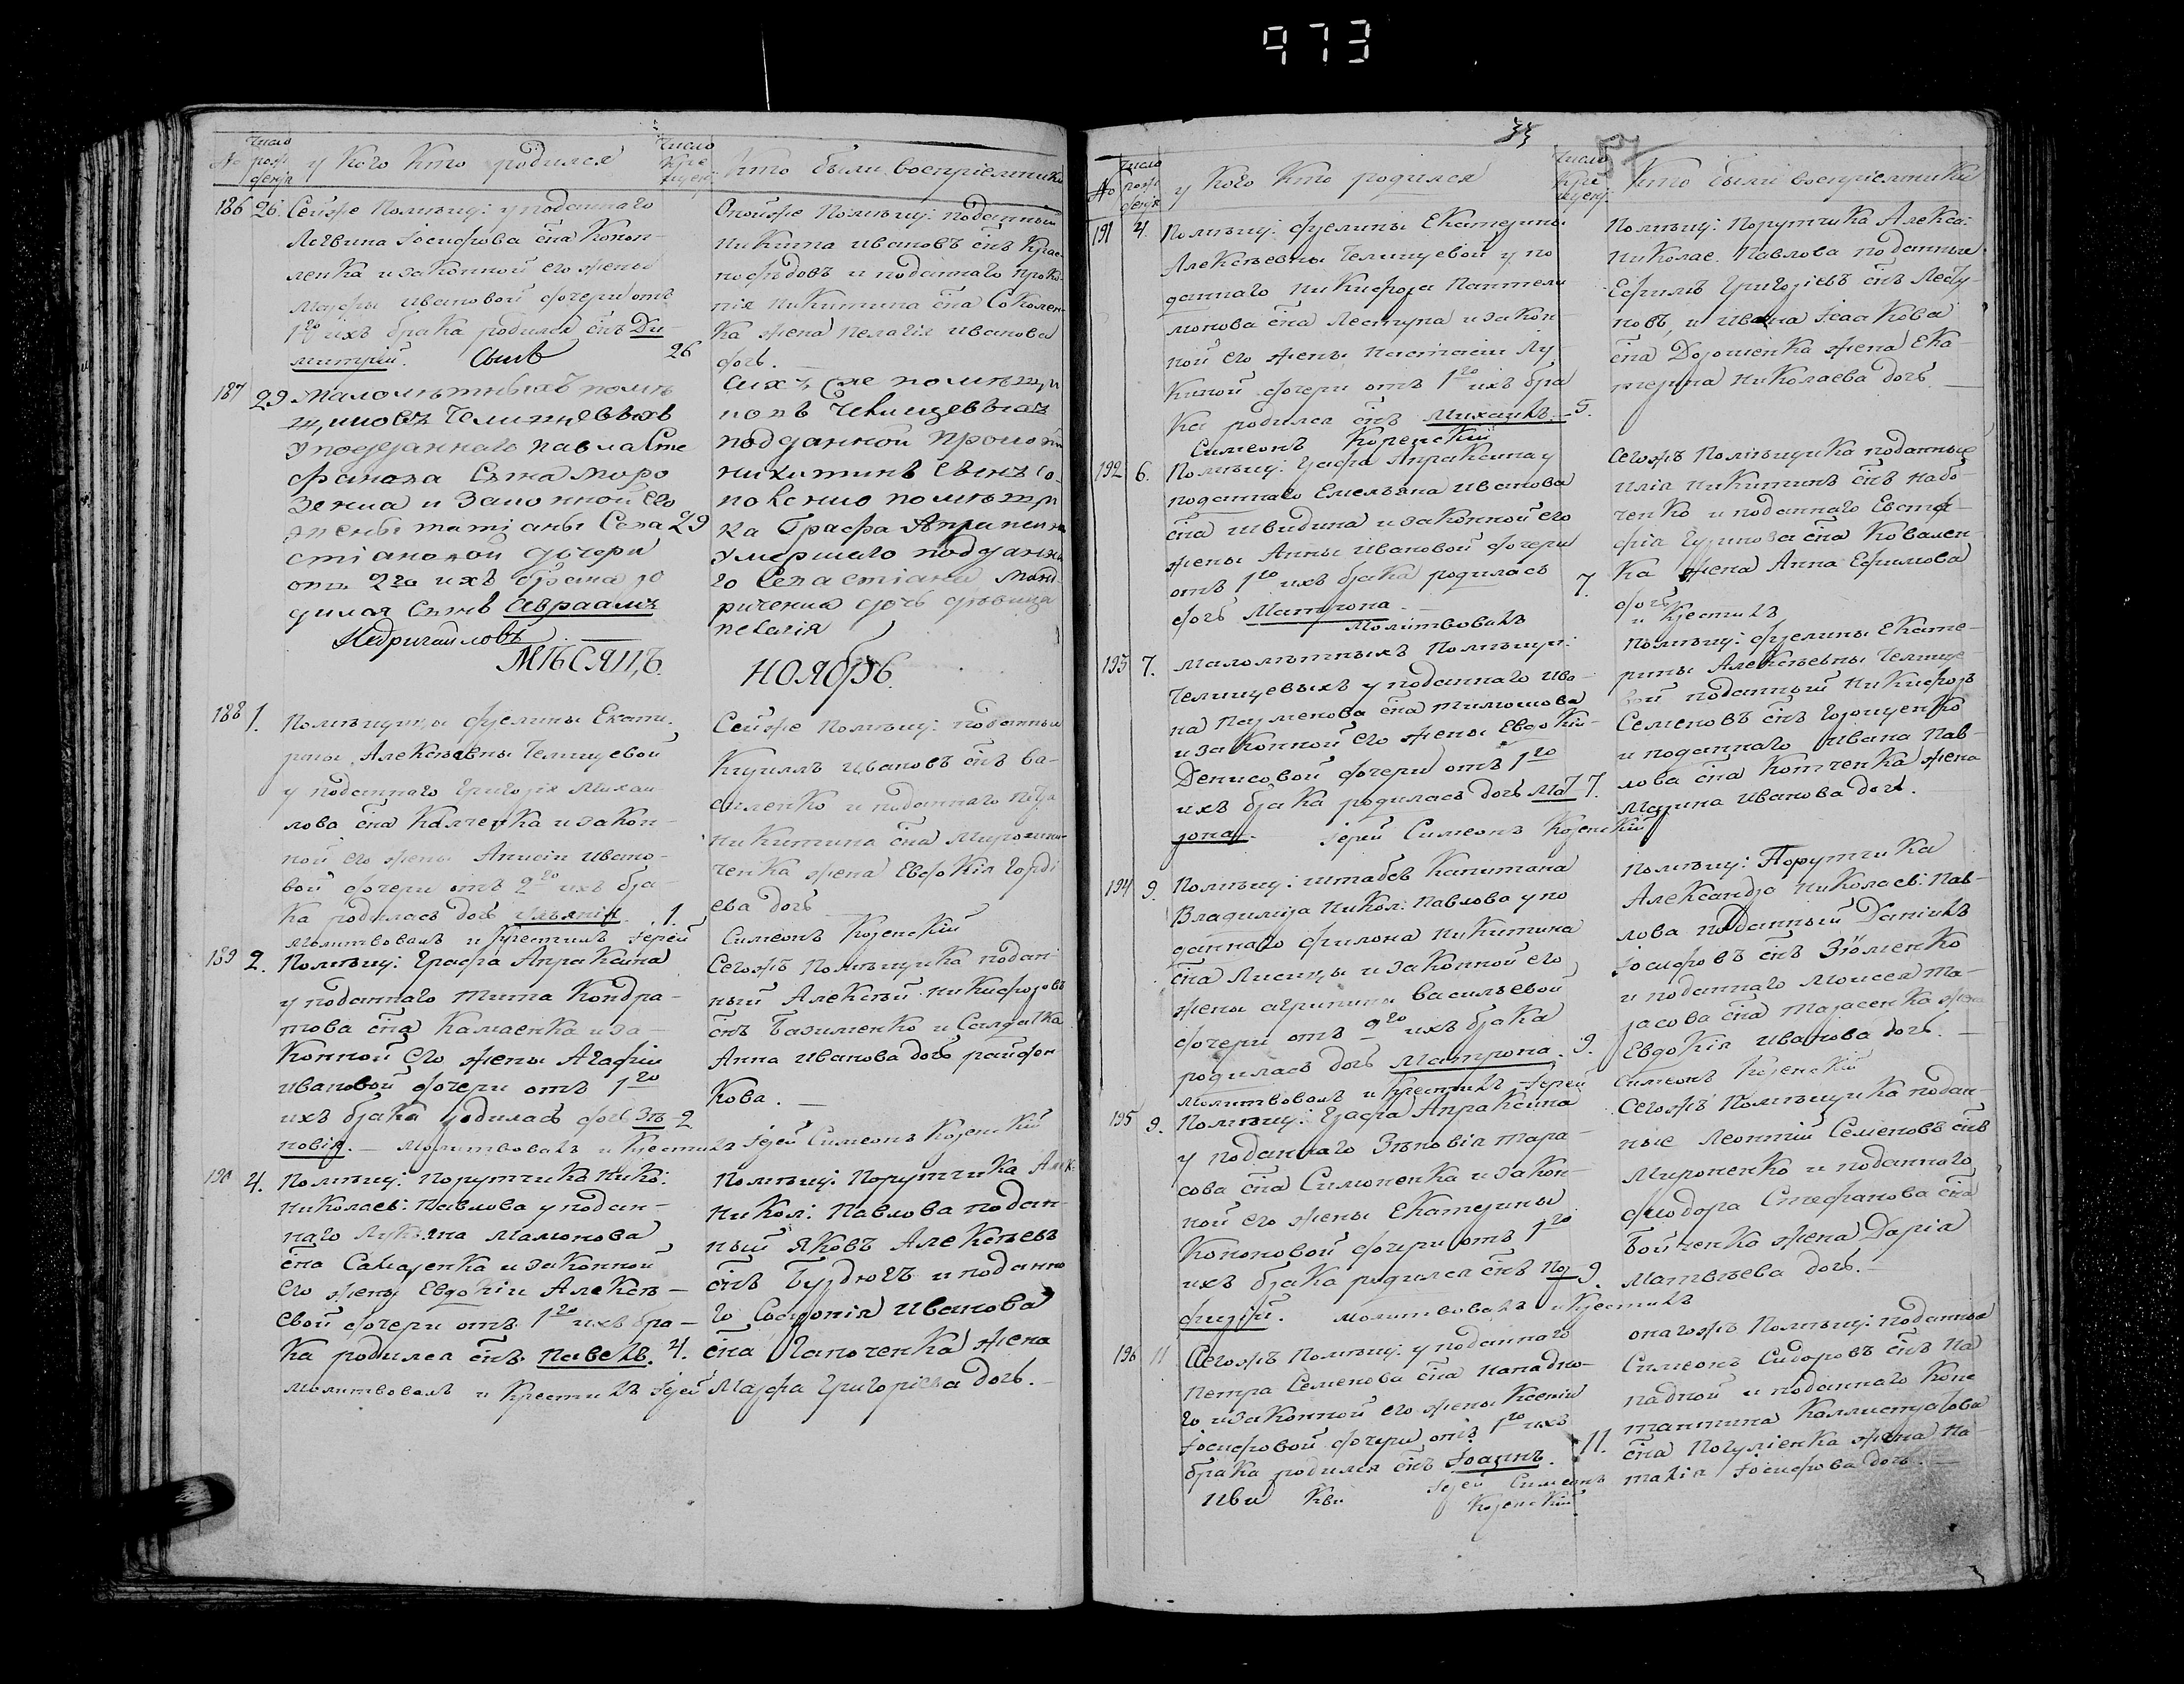 973
№
число рождения
у кого кто родился
число крещен.
кто были восприемники
186 26. Сейже помѣщ: у поданнаго
Логвина Іосифова сна Конон-
ленка и законной его жены
Марфы Ивановой дочери отъ
1го ихъ брака родился снъ Ди-
митрій. 26
Онойже помѣщ: поданный
Никита Ивановъ снъ Крас-
и поданнаго Проко-
пія Никитина сна Соколен-
ка жена Пелагія Иванова
дочь.
187 29 малолѣтныхъ помѣ
щиковъ Челищевыхъ
у подданнаго Павла Сте
фанова сына Моро
зенка и законной его
жены татіаны Сева 29
стіановой дочери
отъ 2го ихъ брака ро
дился сынъ Авраамъ
Недригайловъ
сихъ же помѣщи
ковъ Челищевыхъ
подданной
никитинъ сынъ Со-
помѣщи
ка Графа Апраксина
умершаго подданна
го Севастіана
дочь дѣвица
пелагія
МѢСЯЦЪ НОЯБРЬ.
188 1. Помѣщицы фрелины Екате-
рины Алексѣевны Челищевой
у поданнаго Григорія Михаи-
лова сна Калченка и закон-
ной его жены Анисіи Ивано-
вой дочери отъ 2го ихъ бра-
ка родилась дочь Уліянія. 1.
молитвовалъ и крестилъ Іерей
Сейже помѣщ: поданный
Кириллъ Ивановъ снъ Ва-
силенко и поданнаго Петра
Никитина сна Мирошни-
ченка жена Евдокія Горді
ева дочь
Симеонъ Коренскій
189 2. Помѣщ: Графа Апраксина
у поданнаго Тита Кондра-
това сна Камаенка и за-
конной его жены Агафіи
Ивановой дочери отъ 1го
ихъ брака родилась дочь Зѣ- 2
новія. — молитвовалъ и крестилъ Іерей Симеонъ Коренскій
Сегожъ помѣщика подан-
ный Алексѣй Никифоровъ
снъ Базименко и Солдатка
Анна Иванова дочь
кова. —
190 4. Помѣщ: Порутчика Нико:
Николаев: Павлова у подан-
наго Лукьяна Мамонова
сна Самаренка и законной
его жены Евдокіи Алексѣ-
евой дочери отъ 1го ихъ бра-
ка родился снъ Павелъ. 4.
молитвовалъ и крестилъ Іерей
Помѣщ: Порутчика Алек:
Никол: Павлова подан-
ный Яковъ Алексѣевъ
снъ Бурдюгъ и поданна
го Софронія Иванова
сна Гапоченка жена
Марфа Григоріева дочь. —
33
57
№
число рождения
у кого кто родился
число крещен:
кто были восприемники
191 4. Помѣщ: фрелины Екатерины
Алексѣевны Челищевой у по
даннаго Никифора Пантели
монова сна Лестуна и закон-
ной его жены Настасіи Лу-
киной дочери отъ 1го ихъ бра
ка родился снъ Михаилъ. 5.
Симеонъ Коренскій
Помѣщ: Порутчика Алекса:
Николае. Павлова поданные
Ефимъ Григоріевъ снъ
и Ивана Ісаакова
сна Дорошенка жена Ека-
терина Николаева дочь —
192 6. Помѣщ: Графа Апраксина у
поданнаго Емельяна Иванова
сна Швидина и законной его
жены Анны Ивановой дочери
отъ 1го ихъ брака родилась 7.
дочь Матрона. —
молитвовалъ и крестилъ
Сегожъ помѣщика поданные
Илія Никитинъ снъ Набо-
ченко и поданнаго Евста-
фія сна Ковален-
ка жена Анна Ефимова
дочь
193 7. Малолѣтныхъ помѣщи:
Челищевыхъ у поданнаго Ива-
на сна Тимошова
и законной его жены Евдокіи
Денисовой дочери отъ 1го
ихъ брака родилась дочь Мат 7.
рона. Іерей Симеонъ Коренскій
Помѣщ: фрелины Екате-
рины Алексѣевны Челище-
вой поданный Никифоръ
Семеновъ снъ Горощенко
и поданнаго Ивана Пав-
лова сна Котченка жена
Марина Иванова дочь.
194 9. Помѣщ: Штабсъ Капитана
Владиміра Никол: Павлова у по
даннаго Филона Никитина
сна Лисицы и законной его
жены Агрипины Васильевой
дочери отъ 2го ихъ брака
родилась дочь Матрона. 9.
молитвовалъ и крестилъ Іерей
Помѣщ: Порутчика
Александра Николаев: Пав-
лова поданный Даніилъ
Іосифовъ снъ Зюменко
и поданнаго Моисея Та-
расова сна Тарасенка жена
Евдокія Иванова дочь. —
Симеонъ Коренскій
195 9. Помѣщ: Графа Апраксина
у поданнаго Зѣновія Тара-
сова сна Симоненка и закон-
ной его жены Екатерины
Кононовой дочери отъ 1го
ихъ брака родился снъ Пор 9.
фирій. молитвовалъ и крестилъ
Сегожъ помѣщика подан-
ные Леонтій Семеновъ снъ
Мироненко и поданнаго
Феодора Стефанова сна
Бойченка жена Дарія
Матвѣева дочь. —
196 11 Сегожъ помѣщ: у поданнаго
Петра Семенова сна Нападно-
го и законной его жены Ксеніи
Іосифовой дочери отъ 1го ихъ
брака родился снъ Іоаннъ. 11.
Іерей Симеонъ
Коренскій
онагожъ помѣщ: поданные
Симеонъ Сидоровъ снъ На
падной и поданнаго Конс
тантина Каллистратова
сна жена На-
талія Іосифова дочь. —